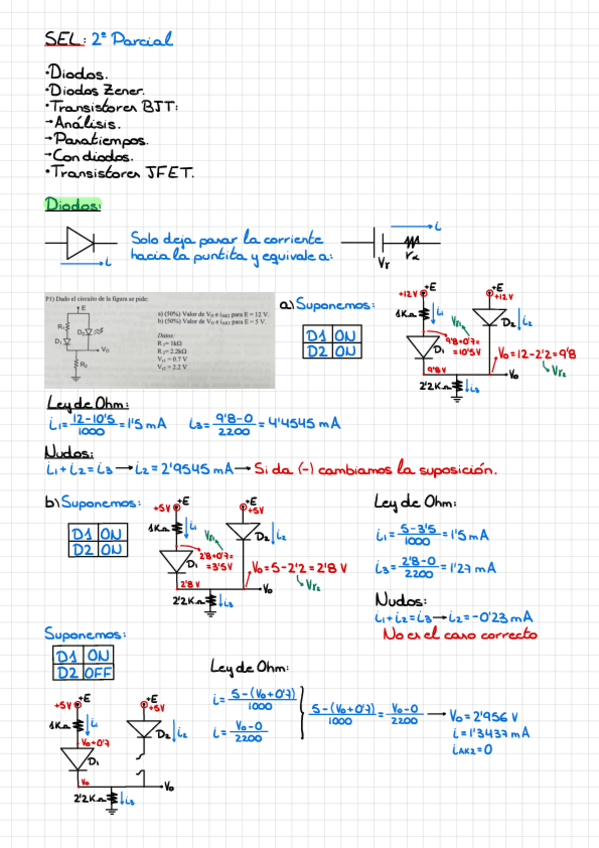 SEL: 2º Parcial
·Diodos.
·Diodos Zener.
·Transistores BJT:
→Análisis.
→Pasatiempos.
→Con diodos.
·Transistores JFET.
Diodos:
i
Solo deja pasar la corriente
hacia la puntita y equivale a:
i
Vr
P1) Dado el circuito de la figura se pide:
a) (50%) Valor de Vo e iAK2 para E = 12 V.
b) (50%) Valor de Vo e iAK2 para E = 5 V.
Datos:
R1= 1kΩ
R2= 2.2kΩ
Vγ1 = 0.7 V
Vγ2 = 2.2 V
E
R1
D2
D1
Vo
R2
a) Suponemos:
D1 ON
D2 ON
+12V +E
+E +12V
1KΩ i1
Vr1
9'8+0'7=
=10'5V
D1
D2 i2
9'8V
Vo=12-2'2=9'8
Vr2
Vo
2'2KΩ i3
Ley de Ohm:
i1= 12-10'5 / 1000 = 1'5 mA i3= 9'8-0 / 2200 = 4'4545 mA
Nudos:
i1+i2=i3 → i2=2'9545 mA → Si da (-) cambiamos la suposición.
b) Suponemos:
D1 ON
D2 ON
+5V +E
+E +5V
1KΩ i1
Vr1
2'8+0'7=
=3'5V
D1
D2 i2
2'8V
Vo=5-2'2=2'8 V
Vr2
Vo
2'2KΩ i3
Ley de Ohm:
i1= 5-3'5 / 1000 = 1'5 mA
i3= 2'8-0 / 2200 = 1'27 mA
Nudos:
i1+i2=i3 → i2=-0'23 mA
No es el caso correcto
Suponemos:
D1 ON
D2 OFF
+5V +E
+E +5V
1KΩ i1
Vo+0'7
D1
D2 i2
Vo
Vo
2'2KΩ i3
Ley de Ohm:
i= 5-(Vo+0'7) / 1000
i= Vo-0 / 2200
5-(Vo+0'7) / 1000 = Vo-0 / 2200 → Vo=2'956 V
i=1'3437 mA
iAK2=0